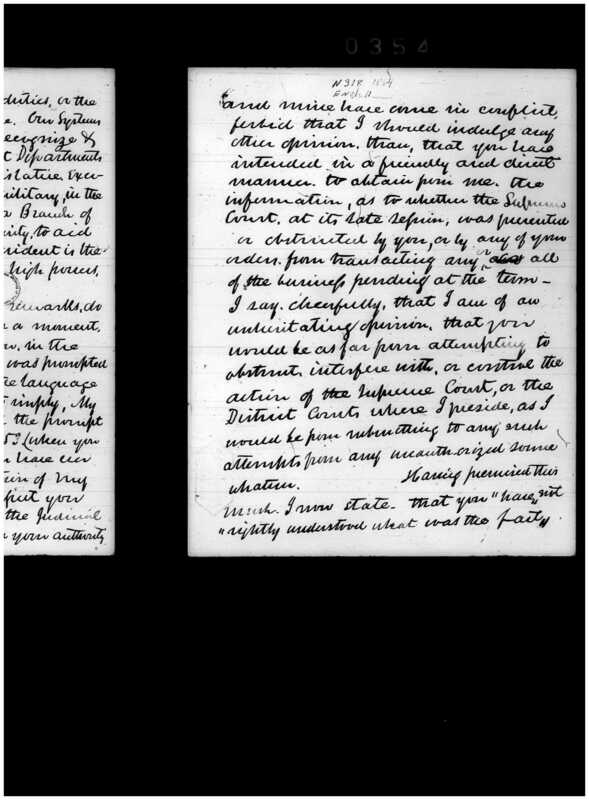 0354
duties, or the
e. Our Systems
recognize &
t Departments
islative, Exec-
military, in the
a Branch of
to aid
sident is the
high powers.
Remarks, do
a moment,
in the
was prompted
e language
imply, My
the prompt
53 (when you
have
tion of my
you
the Judicial
your authority
N 318 1864
and mine have come in conflict,
forbid that I should indulge any
other opinion, than, that you have
intended in a friendly and direct
manner, to obtain from me, the
information, as to whether the Supreme
Court, at its late session, was prevented
or obstructed by you, or by any of your
orders, from transacting any or all
of the business pending at the term –
I say, cheerfully, that I am of an
unhesitating opinion, that you
would be as far from attempting to
obstruct, interfere with, or control the
action of the Supreme Court, or the
District Courts where I preside, as I
would be from submitting to any such
attempts from any unauthorized source
whatever.
Having premised this
much, I now state – that you "have, not
"rightly understood what was the fact"